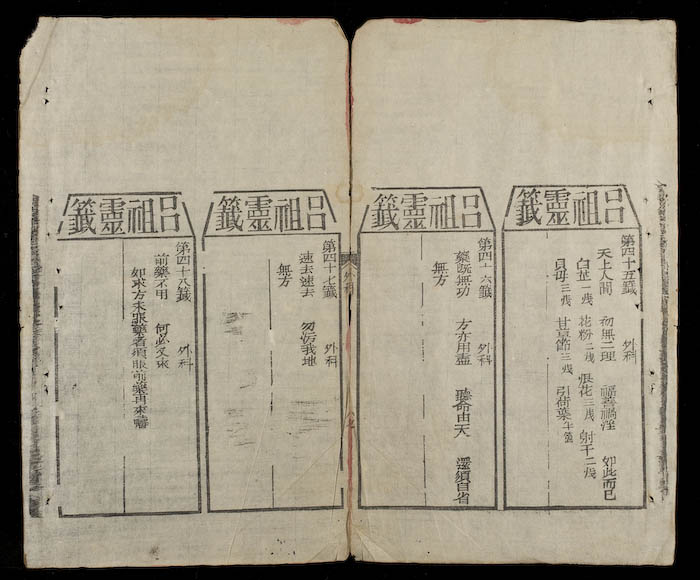 呂祖靈籤
第四十五籤 外科
天上人間 初無二理 福善禍淫 如此而已
白芷二戔 花粉二戔 艮花三戔 射干二戔
貝毋三戔 甘草節三戔 引荷葉半
呂祖靈籤
第四十六籤 外科
藥既無功 方亦用盡 聽命由天 還須自省
無方
外科
呂祖靈籤
第四十七籤 外科
速去速去 勿污我地
無方
呂祖靈籤
第四十八籤 外科
前藥不用 何必又來
如求方未服藥者須服前藥再來禱